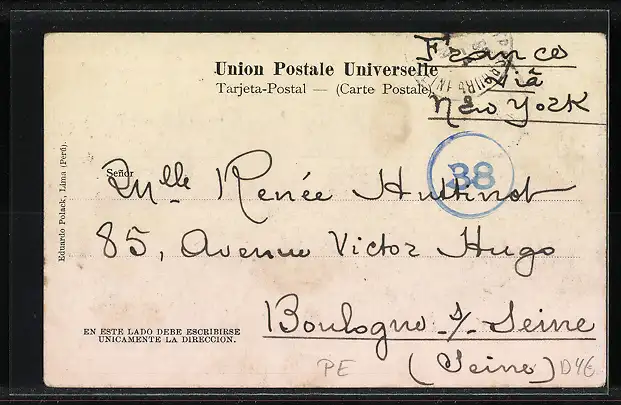 Franco
Viâ
New York
Union Postale Universelle
Tarjeta-Postal — (Carte Postale)
38
Señor
Mlle Renée Huttinot
85, Avenue Victor Hugo
Boulogne s/ Seine
(Seine)
EN ESTE LADO DEBE ESCRIBIRSE
UNICAMENTE LA DIRECCION.
Eduardo Polack, Lima (Perú).
PE
D46